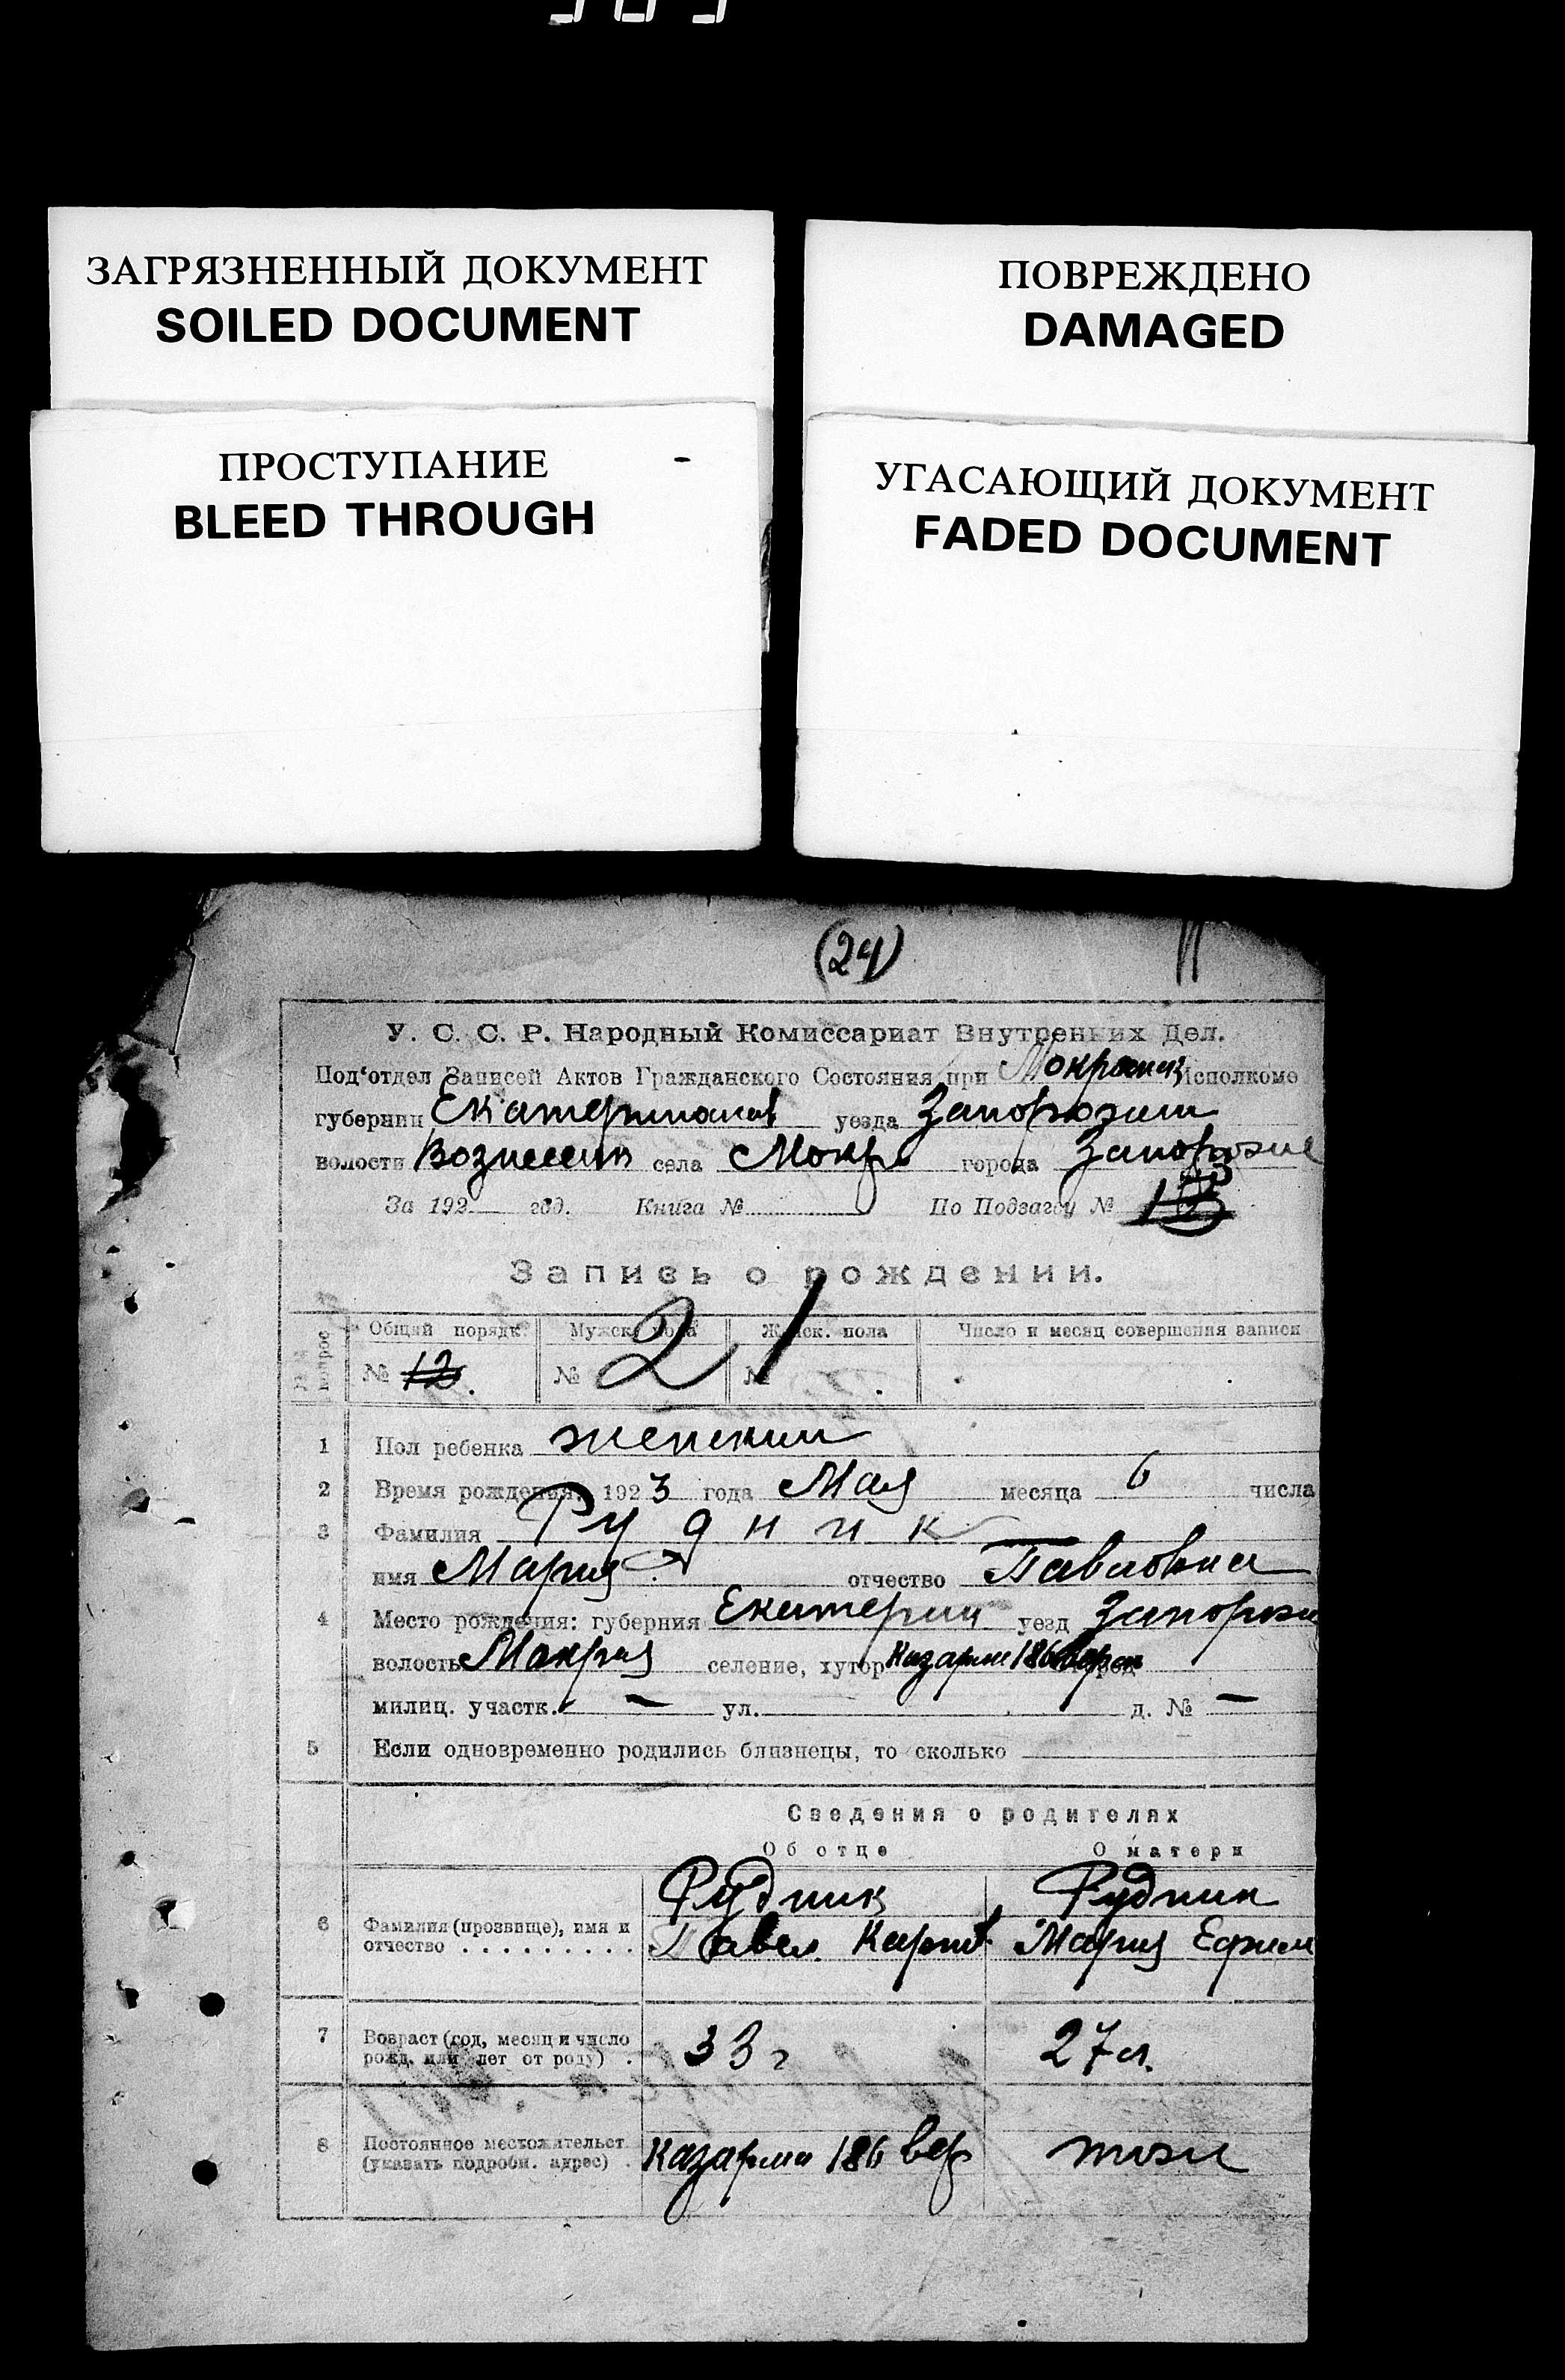 ЗАГРЯЗНЕННЫЙ ДОКУМЕНТ
SOILED DOCUMENT
ПОВРЕЖДЕНО
DAMAGED
ПРОСТУПАНИЕ
BLEED THROUGH
УГАСАЮЩИЙ ДОКУМЕНТ
FADED DOCUMENT
(24)
У. С. С. Р. Народный Комиссариат Внутренних Дел.
Под‘отдел Записей Актов Гражданского Состояния при Исполкоме
губернии уезда
волости села Мокро города Запорожие
За 192 год. Книга № По Подзагсу №
Запись о рождении.
Общий порядк. Мужск. пола Женск. пола Число и месяц совершения записи
№ 12. № 21 №
1 Пол ребенка женский
2 Время рождения: 1923 года Мая месяца 6 числа
3 Фамилия Рудник
имя Мария отчество Павловна
4 Место рождения: губерния Екатерин уезд Запорож
волость Мокрая селение, хутор Казарма 186 верст
милиц. участк. — ул. д. № —
5 Если одновременно родились близнецы, то сколько
Сведения о родителях
Об отце О матери
Рудник Рудник
6 Фамилия (прозвище), имя и отчество . . . . . . . . . Павел Карпов Мария Ефим
7 Возраст (год, месяц и число рожд. или лет от роду) . 33 г 27 л.
8 Постоянное местожительст (указать подробн. адрес) . Казарма 186 вер тоже